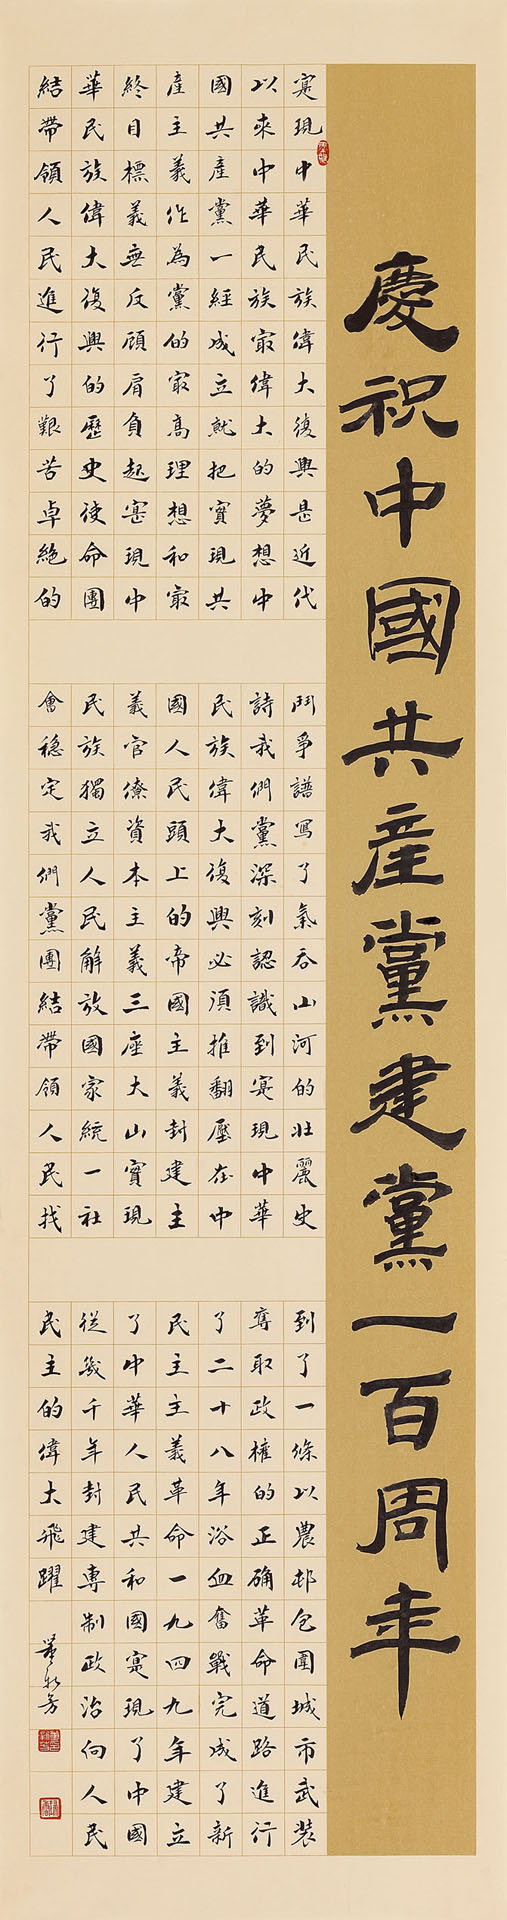 慶祝中國共產黨建黨一百周年
寔現中華民族偉大復興是近代
以來中華民族最偉大的夢想中
國共產黨一經成立就把實現共
產主義作為黨的最高理想和最
終目標義無反顧肩負起寔現中
華民族偉大復興的歷史使命團
結帶領人民進行了艱苦卓絕的
鬥爭譜寫了氣吞山河的壯麗史
詩我們黨深刻認識到寔現中華
民族偉大復興必須推翻壓在中
國人民頭上的帝國主義封建主
義官僚資本主義三座大山實現
民族獨立人民解放國家統一社
會穩定我們黨團結帶領人民找
到了一條以農邨包圍城市武裝
奪取政權的正确革命道路進行
了二十八年浴血奮戰完成了新
民主主義革命一九四九年建立
了中華人民共和國寔現了中國
從幾千年封建專制政治向人民
民主的偉大飛躍